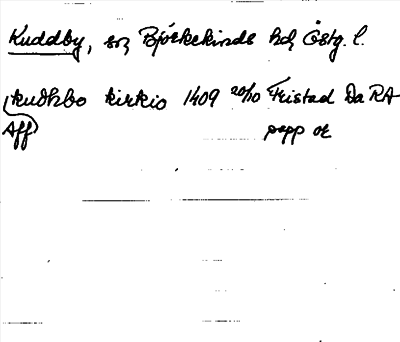 Kuddby, sn Björkekinds hd, Östg. l.
kudhbo kirkio 1409 20/10 Fristad Da RA
Aff papp or